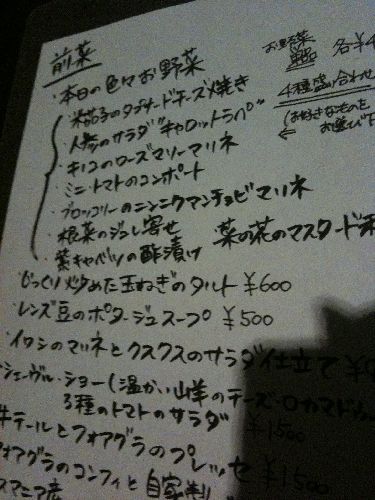 前菜
・本日の色々お野菜
お野菜
各¥4
4種盛り合わせ
(お好きなものを
お選び下
←
米茄子のタプナードチーズ焼き
人参のサラダ"キャロットラペ"
・キノコのローズマリーマリネ
・ミニトマトのコンポート
・ブロッコリーのニンニクアンチョビマリネ
・根菜のジュレ寄せ
・紫キャベツの酢漬け
菜の花のマスタード
・じっくり炒めた玉ねぎのタルト ¥600
・レンズ豆のポタージュスープ ¥500
・イワシのマリネとクスクスのサラダ仕立て ¥
シェーヴル・ショー(温かい山羊のチーズ・ロカマドゥール
3種のトマトのサラダ ¥1500
牛テールとフォアグラのプレッセ ¥1500
フォアグラのコンフィと自家製
スマニア産